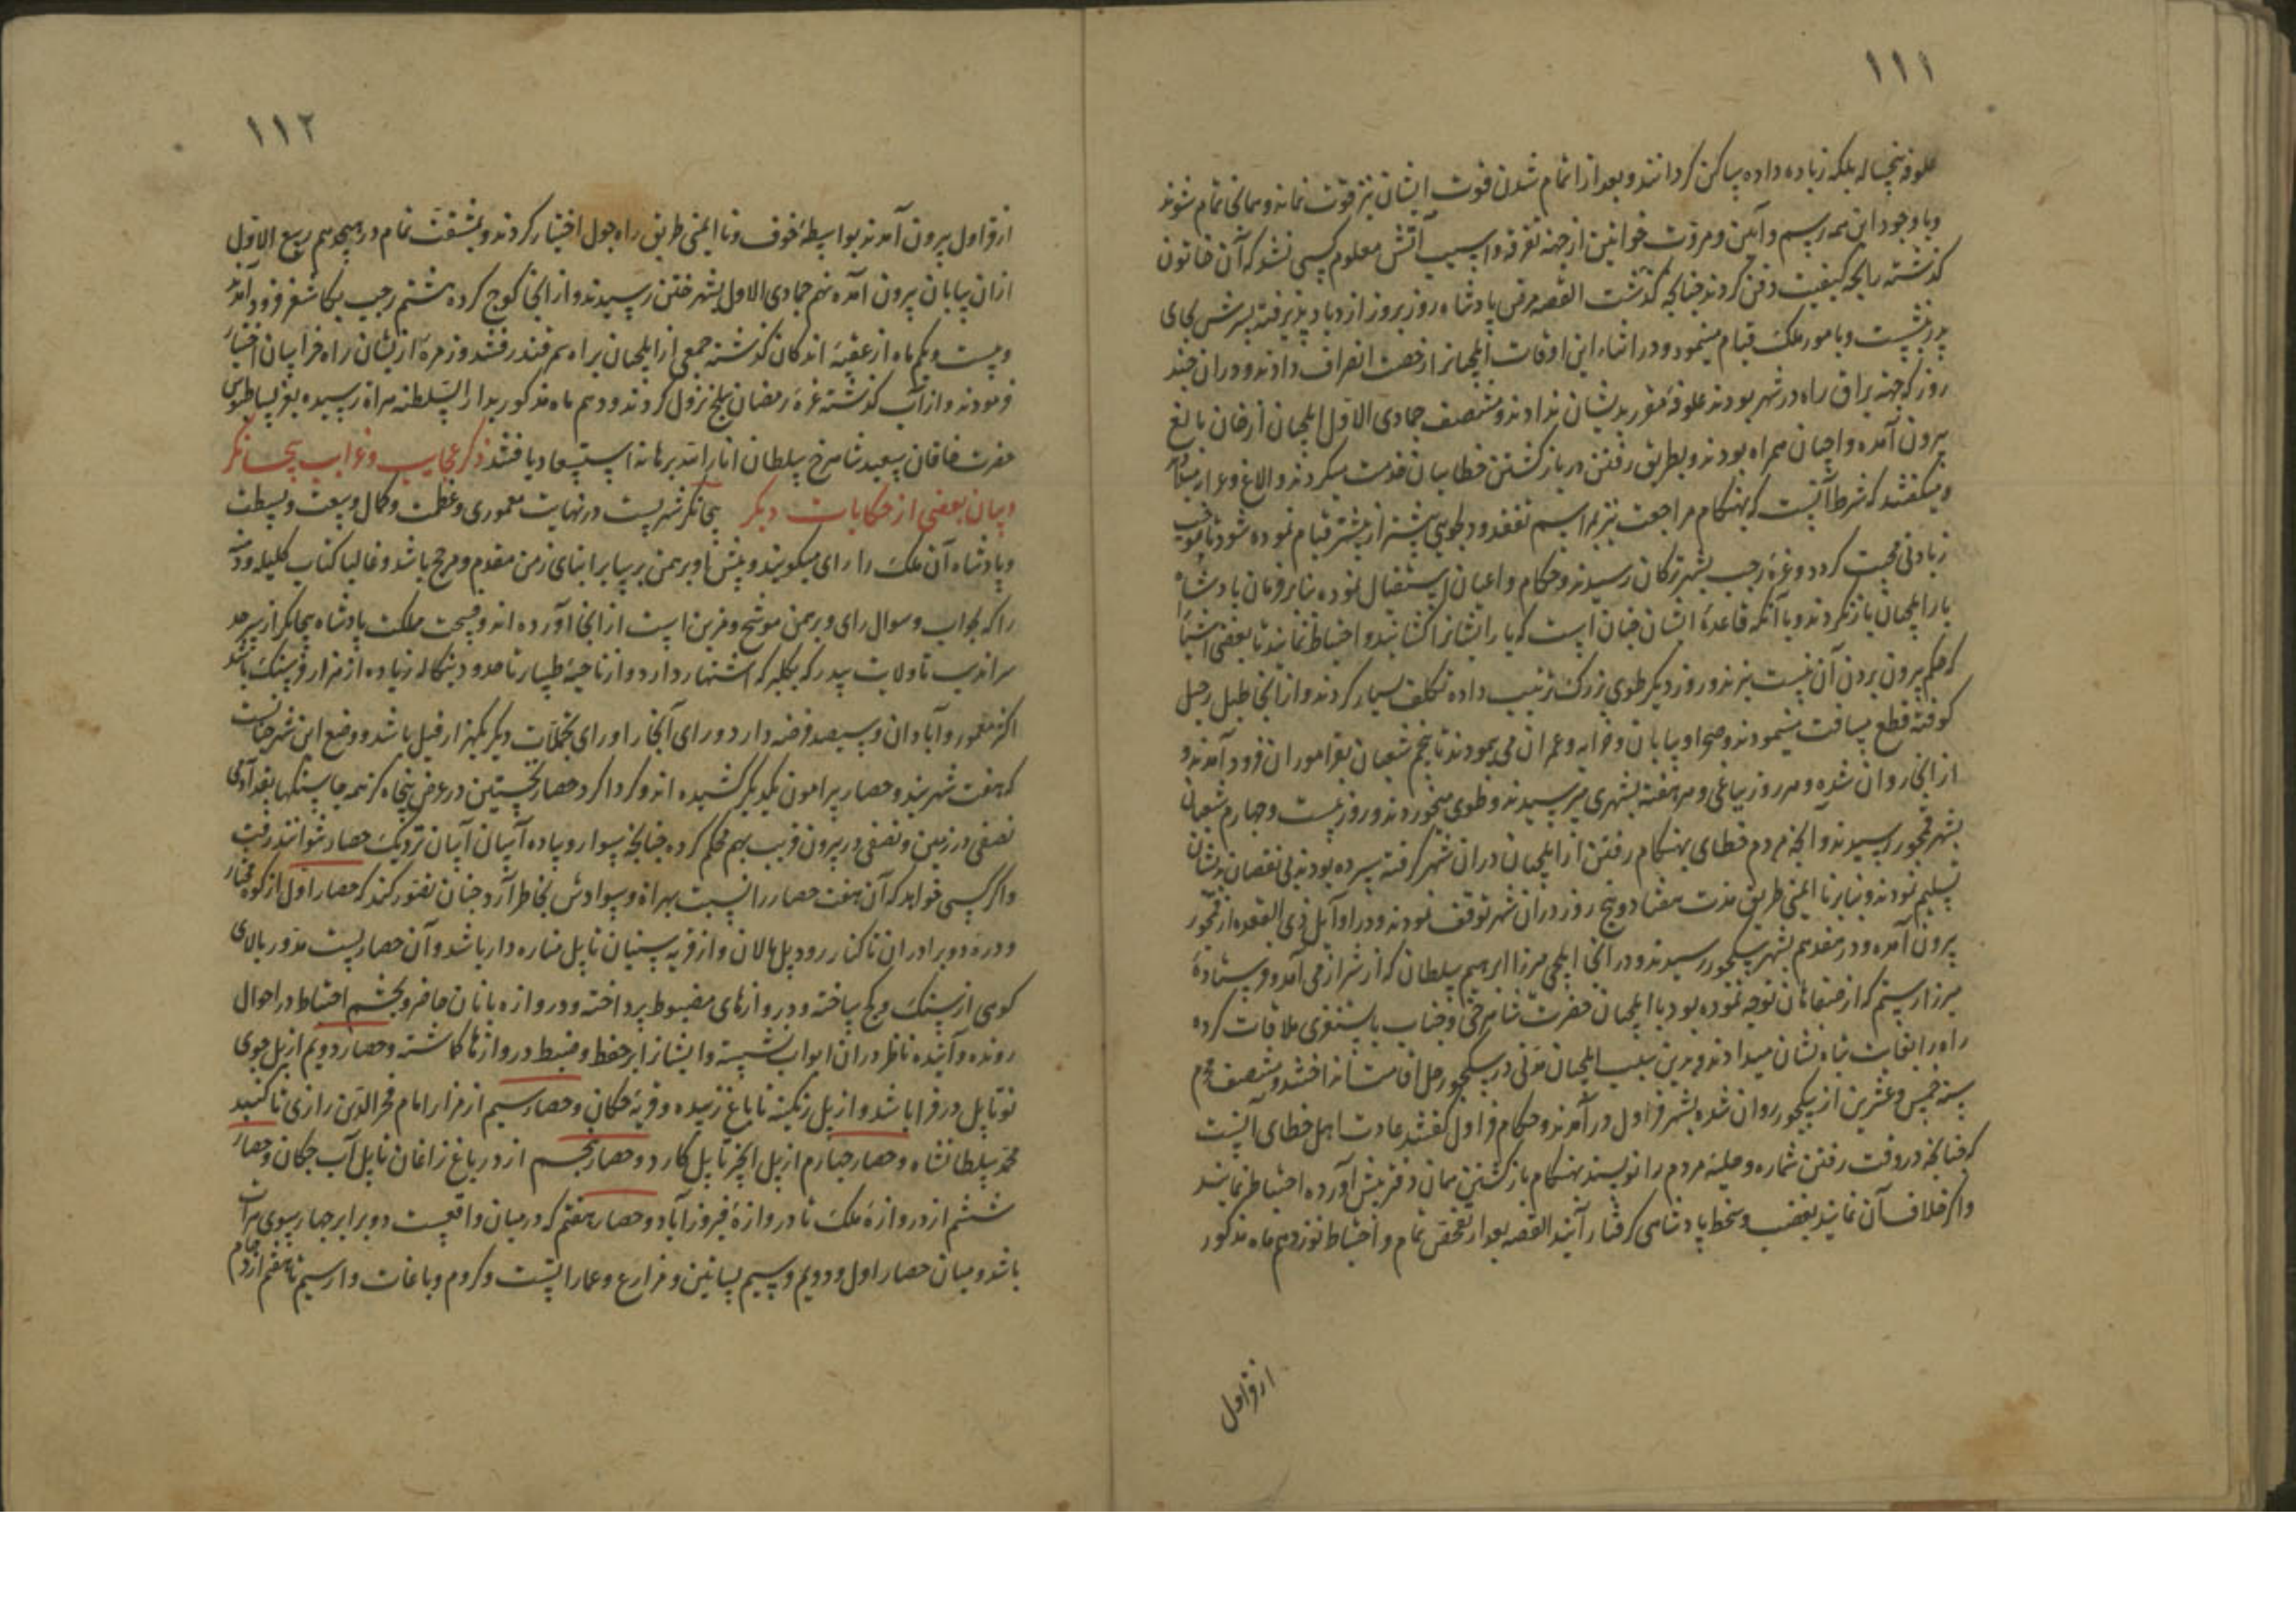 ۱۱۱
علوفه پنجساله بلکه زیاده داده ساکن گردانند و بعد از اتمام شدن قوت ایشان نیز قوت نماند و همانجا تمام شوند
و با وجود این همه رسم و آیین و مروت خواتین از جهة تفرقه و آسیب آتش معلوم کسی نشد که آن خاتون
گذشته را بچه کیفیت دفن کردند چنانچه گذشت القصه مرض پادشاه روز بروز ازدیاد پذیرفته پسرش بجای
پدر نشست و بامور ملک قیام مینمود و در اثناء این اوقات ایلچیانرا رخصت انصراف دادند و در آن چند
روز که جهة یراق راه در شهر بودند علوفه مقرر بدیشان ندادند و منتصف جمادی الاول ایلچیان از خان بالغ
بیرون آمده و اجیان همراه بودند و بطریق رفتن در بازگشتن خطاییان خدمت میکردند و الاغ و عرابه
و میگفتند که شرط آنست که بهنگام مراجعت نیز بمراسم تفقد و دلجویی بیشتر از پیشتر قیام نموده شود تا موجب
زیادتی محبت گردد و غره رجب بشهر نیکان رسیدند و حکام و اعیان استقبال نموده بنابر فرمان پادشاه
بار ایلچیان باز نکردند و با آنکه قاعدهٔ ایشان چنان است که بار ایشانرا گشایند و احتیاط نمایند تا بعضی اشیا
که حکم بیرون بردن آن نیست نبرند و روز دیگر طوی بزرگ ترتیب داده تکلف بسیار کردند و از آنجا طبل رحیل
کوفته قطع مسافت مینمودند و صحرا و بیابان و خرابه و عمران می پیمودند تا پنجم شعبان بقراموران فرود آمدند و
از آنجا روان شده و هر روز بیامی و هر هفته بشهری میرسیدند و طوی میخوردند و روز بیست و چهارم شعبان
بشهر قمجو رسیدند و آنچه مردم خطای بهنگام رفتن از ایلچیان در آن شهر گرفته سپرده بودند بی نقصان بدیشان
تسلیم نمودند و بنابر ناایمنی طریق مدت هفتاد و پنج روز در آن شهر توقف نمودند و در اوآیل ذی القعده از قمجو
بیرون آمده و در هفدهم بشهر سکجو رسیدند و در آنجا ایلچی میرزا ابراهیم سلطان که از شیراز می آمد و فرستادهٔ
میرزا رستم که از اصفهان توجه نموده بود با ایلچیان حضرت شاهرخی و جناب بایسنغری ملاقات کرده
راه را بغایت تباه نشان میدادند و بدین سبب ایلچیان مدتی در سکجو رحل اقامت انداختند و منتصف محرم
سنه خمس و عشرین از سکجو روان شده بشهر قراول در آمدند و حکام قراول گفتند عادت اهل خطای آنست
که چنانچه در وقت رفتن شماره و حلیهٔ مردم را نویسند بهنگام بازگشتن همان دفتر پیش آورده احتیاط نمایند
و اگر خلاف آن نمایند بغضب و سخط پادشاهی گرفتار آیند القصه بعد از تفحص تمام و احتیاط نوزدهم ماه مذکور
از قراول
۱۱۲
از قراول بیرون آمدند بواسطهٔ خوف و ناایمنی طریق راه چول اختیار کردند و بمشقت تمام در هیجدهم ربیع الاول
از آن بیابان بیرون آمده نهم جمادی الاول بشهر ختن رسیدند و از آنجا کوچ کرده هشتم رجب بکاشغر فرود آمدند
و بیست و یکم ماه از عقبهٔ اندکان گذشته جمعی از ایلچیان براه سمرقند رفتند و زمرهٔ از ایشان راه خراسان اختیار
فرمودند و از آب گذشته غره رمضان ببلخ نزول کردند و دهم ماه مذکور بدار السلطنه هراة رسیده بعز بساطبوس
حضرت خاقان سعید شاهرخ سلطان انار الله برهانه استسعاد یافتند ذکر عجایب و غرایب بیجانگر
و بیان بعضی از حکایات دیگر بیجانگر شهریست در نهایت معموری و عظمت و کمال وسعت و بسطت
و پادشاه آن ملک را رای میگویند و پیش او برهمن بر سایر ابنای زمن مقدم و مرجح باشد و غالبا کتاب کلیله و دمنه
را که بجواب و سوال رای و برهمن موشح و مزین است از آنجا آورده اند و فسحت مملکت پادشاه بیجانگر از سرحد
سراندیب تا ولایت بیدر که بکلبرکه اشتهار دارد و از ناحیهٔ ملیبار تا حدود بنگاله زیاده از هزار فرسنگ باشد
اکثر معمور و آبادان و سیصد فرضه دارد و رای آنجا را ورای تجملات دیگر یکهزار فیل باشد و وضع این شهر چنانست
که هفت شهربند و حصار پیرامون یکدیگر کشیده اند و گرداگرد حصار نخستین در عرض پنجاه گز همه جا سنگها بقد آدمی
نصفی در زمین و نصفی در بیرون قریب بهم محکم کرده چنانچه سوار و پیاده آسان آسان نزدیک حصار نتوانند رفت
و اگر کسی خواهد که آن هفت حصار را نسبت بهراة و سوادش بخاطر آرد چنان تصور کند که حصار اول از کوه مختار
و دره دو برادران تا کنار رود پل مالان و از قریه سنیان تا پل مناره دار باشد و آن حصاریست مدور بالای
کوهی از سنگ و گچ ساخته و دروازهای مضبوط پرداخته و دروازه بانان حاضر و بچشم احتیاط در احوال
رونده و آینده ناظر در آن ابواب نشسته و ایشانرا بر حفظ و ضبط دروازها گماشته و حصار دویم از پل جوی
نو تا پل درقرا باشد و از پل رنگینه تا باغ زبیده و قریهٔ جکان و حصار سیم از مزار امام فخر الدین رازی تا گنبد
محمد سلطانشاه و حصار چهارم از پل انجیر تا پل کارد و حصار پنجم از در باغ زاغان تا پل آب جکان و حصار
ششم از دروازهٔ ملک تا دروازهٔ فیروزآباد و حصار هفتم که در میان واقعست ده برابر چهارسوی هرات
باشد و میان حصار اول و دویم و سیم بساتین و مزارع و عماراتست و کروم و باغات و از سیم تا هفتم ازدحام